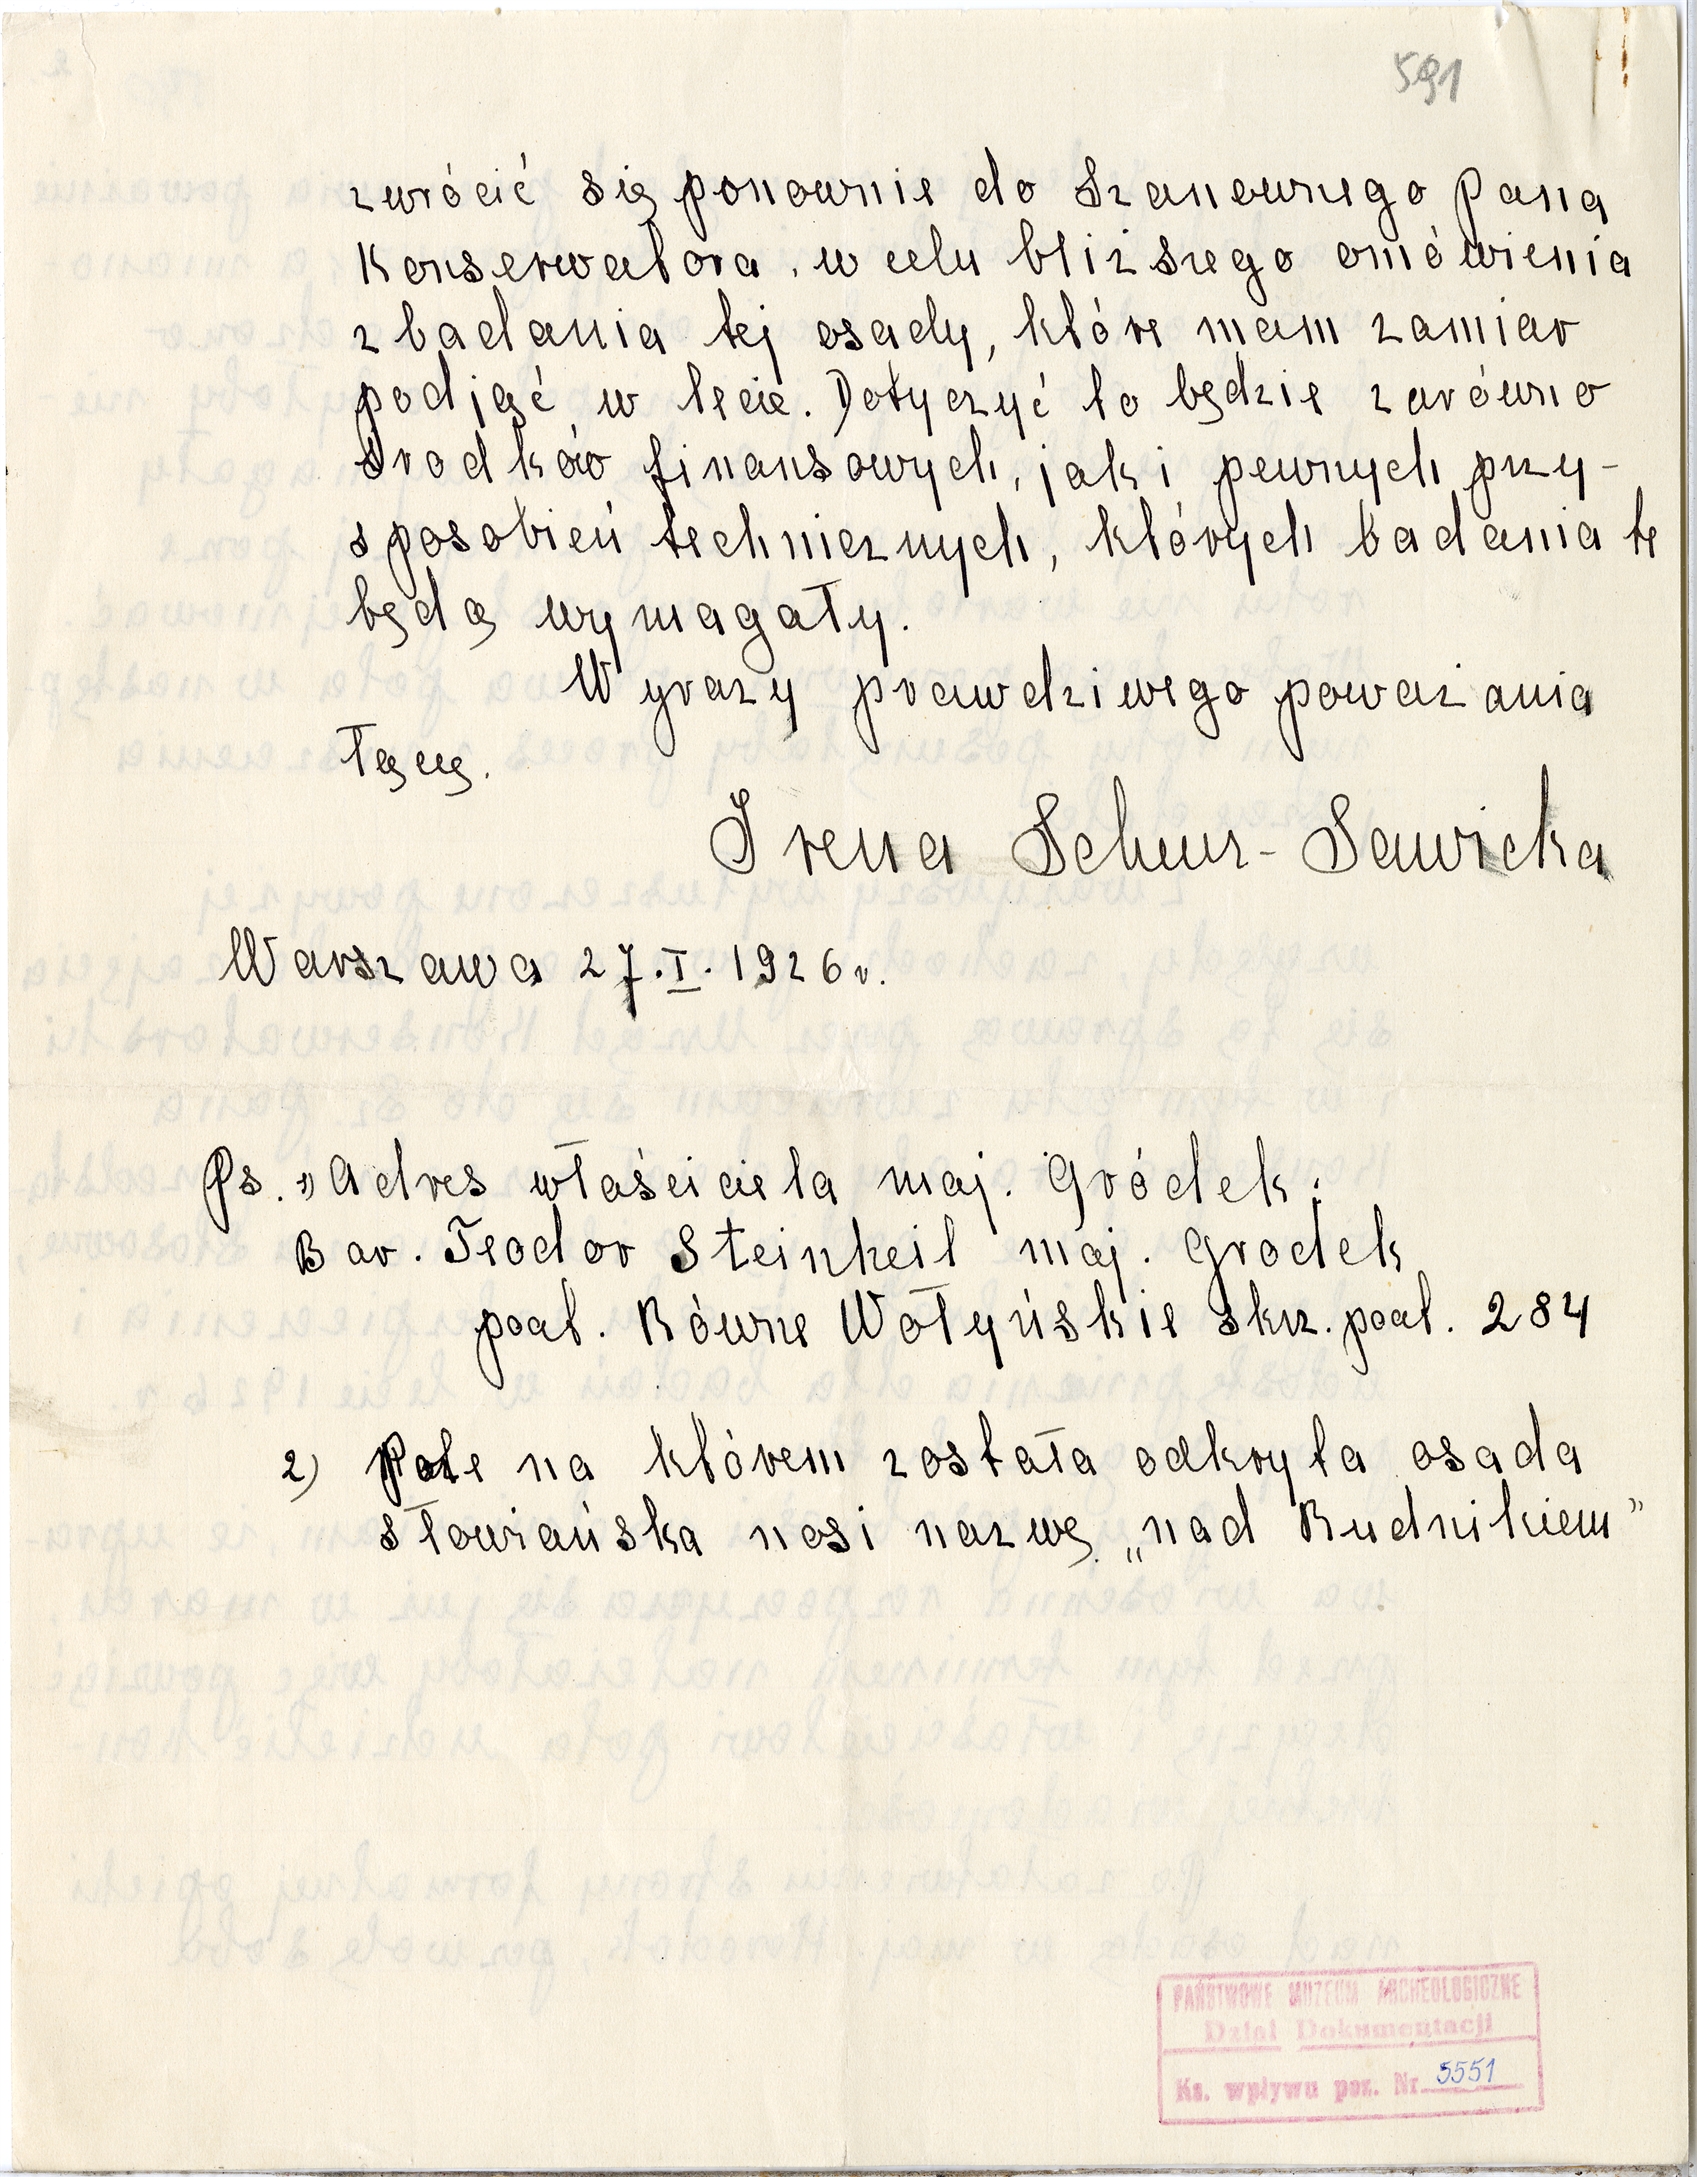 591
zwrócić się ponownie do Szanownego Pana
Konserwatora, w celu bliższego omówienia
zbadania tej osady, które mam zamiar
podjąć w lecie. Dotyczyć to będzie zarówno
środków finansowych, jak i pewnych przy-
sposobień technicznych, których badania te
będą wymagały.
Wyrazy prawdziwego poważania
łączę.
Irena Scheur-Sawicka
Warszawa 27.I.1926 r.
Ps. 1) Adres właściciela maj. Gródek:
Bar. Teodor Steinheil maj. Grodek
pocz. Równe Wołyńskie skrz. pocz. 284
2) Pole na którem została odkryta osada
słowiańska nosi nazwę „nad Rudnikiem”
PAŃSTWOWE MUZEUM ARCHEOLOGICZNE
Dział Dokumentacji
Ks. wpływu poz. Nr. 5551